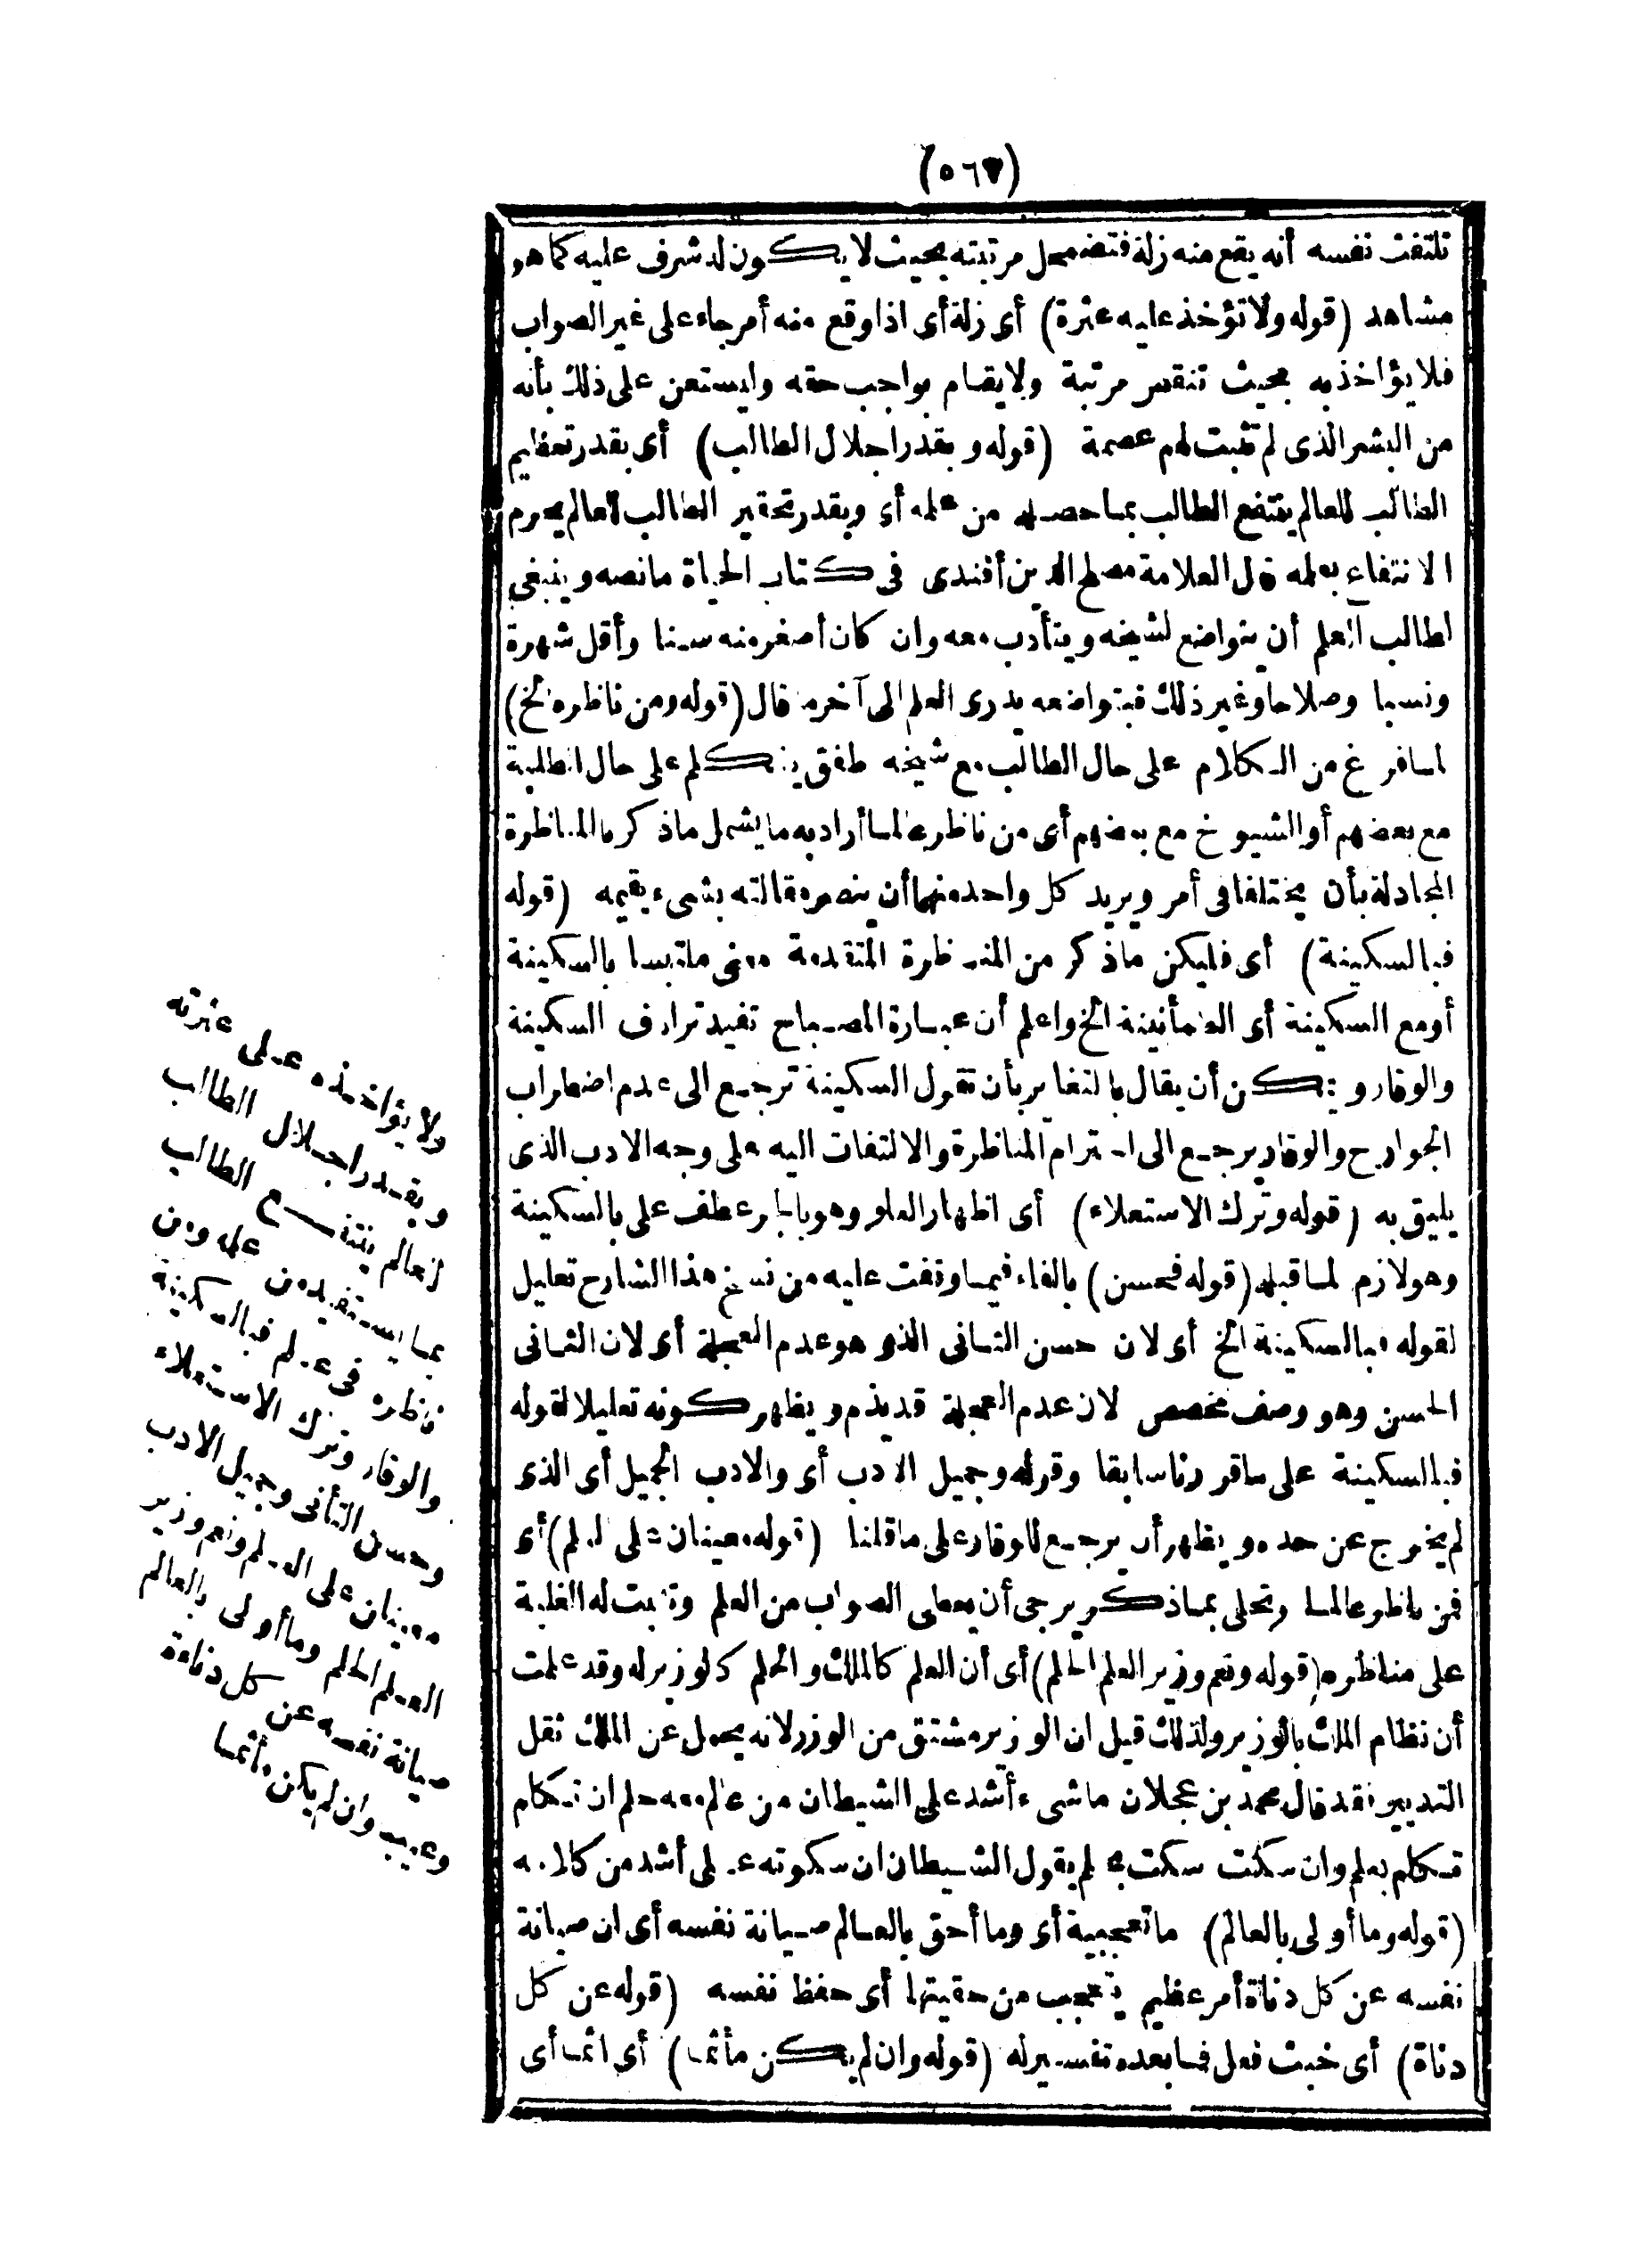 (٥٦٧)
تلتفت نفسه أنه يقع منه زلة فتضمحل مرتبته بحيث لا يكون له شرف عليه كما هو
مشاهد (قوله ولا تؤخذ عليه عثرة) أى زلة أى اذا وقع منه أمر جاء على غير الصواب
فلا يؤاخذ به بحيث تنقص مرتبة ولا يقام بواجب حقه وليستعن على ذلك بأنه
من البشر الذى لم تثبت لهم عصمة (قوله وبقدر اجلال الطالب) أى بقدر تعظيم
الطالب للعالم ينتفع الطالب بما حصله من علمه أى وبقدر تحقير الطالب للعالم يحرم
الانتفاع بعلمه قال العلامة مصلح الدين أفندى فى كتاب الحياة ما نصه وينبغى
لطالب العلم أن يتواضع لشيخه ويتأدب معه وان كان أصغر منه سنا وأقل شهرة
ونسبا وصلاحا وغير ذلك فبتواضعه يدرى العلم الى آخره قال (قوله ومن ناظره الخ)
لما فرغ من الكلام على حال الطالب مع شيخه طفق يتكلم على حال الطلبة
مع بعضهم أو الشيوخ مع بعضهم أى من ناظر عالما أراد به ما يشمل ما ذكر بالمناظرة
المجادلة بأن يختلفا فى أمر ويريد كل واحد منهما أن ينصر مقالته بشىء يقيمه (قوله
فبالسكينة) أى فليكن ما ذكر من المناظرة المتقدمة معنى ملتبسا بالسكينة
أو مع السكينة أى الطمأنينة الخ واعلم أن عبارة المصباح تفيد ترادف السكينة
والوقار ويمكن أن يقال بالتغاير بأن تقول السكينة ترجع الى عدم اضطراب
الجوارح والوقار يرجع الى احترام المناظرة والالتفات اليه على وجه الادب الذى
يليق به (قوله وترك الاستعلاء) أى اظهار العلو وهو بالجر عطف على بالسكينة
وهو لازم لما قبله (قوله فحسن) بالفاء فيما وقفت عليه من نسخ هذا الشارح تعليل
لقوله فبالسكينة الخ أى لان حسن التانى الذى هو عدم العجلة أى لان التانى
الحسن وهو وصف مخصص لان عدم العجلة قد يذم ويظهر كونه تعليلا لقوله
فبالسكينة على ما قررنا سابقا وقوله وجميل الادب أى والادب الجميل أى الذى
لم يخرج عن حده ويظهر أن يرجع للوقار على ما قلنا (قوله معينان على العلم) أى
فمن ناظر عالما وتحلى بما ذكر يرجى أن يعطى الصواب من العلم وتثبت له الغلبة
على مناظره (قوله ونعم وزير العلم الحلم) أى أن العلم كالملك والحلم كالوزير له وقد علمت
أن نظام الملك بالوزير ولذلك قيل ان الوزير مشتق من الوزر لانه يحمل عن الملك ثقل
التدبير فقد قال محمد بن عجلان ما شىء أشد على الشيطان من عالم معه حلم ان تكلم
تكلم بعلم وان سكت سكت بحلم يقول الشيطان ان سكوته على أشد من كلامه
(قوله وما أولى بالعالم) ما تعجبية أى وما أحق بالعالم صيانة نفسه أى ان صيانة
نفسه عن كل دناة أمر عظيم يتعجب من حقيتها أى حفظ نفسه (قوله عن كل
دناة) أى خبث فعل فما بعده تفسير له (قوله وان لم يكن مأثما) أى اثما أى
ولا يؤاخذه على عثرته
وبقدر اجلال الطالب
لعالم ينتفع الطالب
بما يستفيده من علمه ومن
ناظره فى علم فبالسكينة
والوقار وترك الاستعلاء
وحسن التأنى وجميل الادب
معينان على العلم ونعم وزير
العلم الحلم وما أولى بالعالم
صيانة نفسه عن كل دناءة
وعيب وان لم يكن مأثما